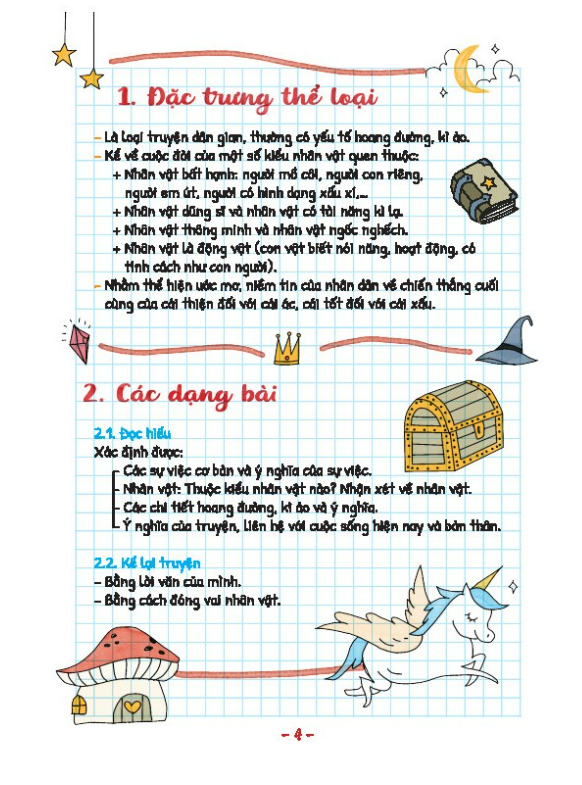 1. Đặc trưng thể loại
– Là loại truyện dân gian, thường có yếu tố hoang đường, kì ảo.
– Kể về cuộc đời của một số kiểu nhân vật quen thuộc:
+ Nhân vật bất hạnh: người mồ côi, người con riêng,
người em út, người có hình dạng xấu xí,...
+ Nhân vật dũng sĩ và nhân vật có tài năng kì lạ.
+ Nhân vật thông minh và nhân vật ngốc nghếch.
+ Nhân vật là động vật (con vật biết nói năng, hoạt động, có
tính cách như con người).
– Nhằm thể hiện ước mơ, niềm tin của nhân dân về chiến thắng cuối
cùng của cái thiện đối với cái ác, cái tốt đối với cái xấu.
2. Các dạng bài
2.1. Đọc hiểu
Xác định được:
Các sự việc cơ bản và ý nghĩa của sự việc.
Nhân vật: Thuộc kiểu nhân vật nào? Nhận xét về nhân vật.
Các chi tiết hoang đường, kì ảo và ý nghĩa.
Ý nghĩa của truyện, liên hệ với cuộc sống hiện nay và bản thân.
2.2. Kể lại truyện
– Bằng lời văn của mình.
– Bằng cách đóng vai nhân vật.
– 4 –